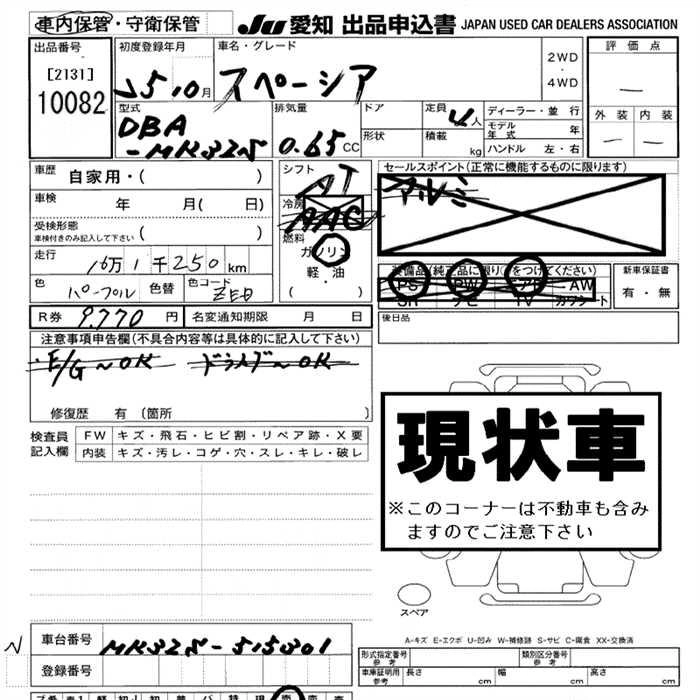 車内保管・守衛保管 JU 愛知 出品申込書 JAPAN USED CAR DEALERS ASSOCIATION
出品番号 初度登録年月 車名・グレード 評価点
[2131] 25 10月 スペーシア 2WD・4WD
10082
型式 排気量 ドア 定員 4人 ディーラー・並行 外装 内装
DBA-MK32S 0.65CC 形状 積載 kg モデル年式 年
ハンドル 左・右
車歴 自家用・( ) シフト AT セールスポイント(正常に機能するものに限ります)
車検 年 月( 日) 冷房 AAC アルミ
受検形態 車検付きのみ記入して下さい ( ) 燃料 ガソリン
走行 16万1千250km 軽・油 装備品(純正品に限り○をつけてください) 新車保証書
色 パープル 色替 色コード ZED ( ) PS PW エアB AW 有・無
SR ナビ TV カワシート
R券 9.770円 名変通知期限 月 日 後日品
注意事項申告欄(不具合内容等は具体的に記入して下さい)
E/G~OK ドライブ~OK
修復歴 有 〔箇所 〕
検査員 FW キズ・飛石・ヒビ割・リペア跡・X要
記入欄 内装 キズ・汚レ・コゲ・穴・スレ・キレ・破レ
現状車
※このコーナーは不動車も含み
ますのでご注意下さい
スペア
A-キズ E-エクボ U-凹み W-補修跡 S-サビ C-腐食 XX-交換済
N 車台番号 MK32S-515301
登録番号
形式指定番号 参考 類別区分番号 参考
車庫証明用 参考 長さ cm 幅 cm 高さ cm